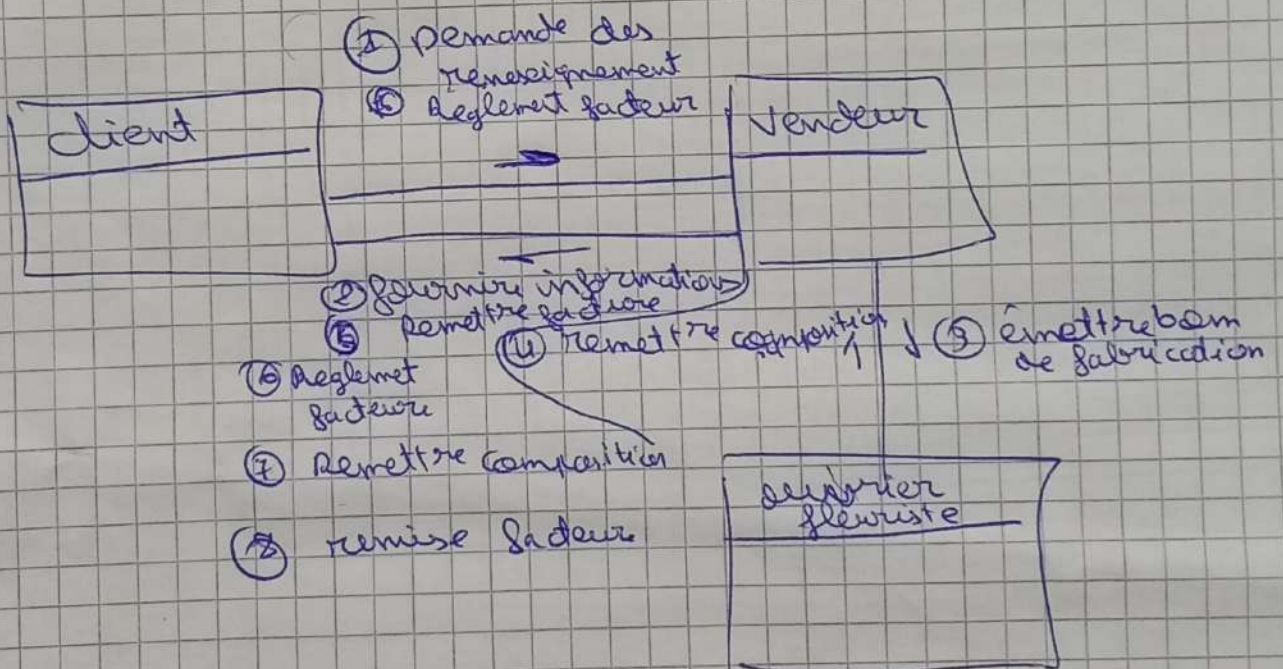 ① Demande des
renseignement
⑥ Reglement facteur
client
vendeur
② fournire information
⑤ Remettre facture
④ remettre composition
③ émettre bom
de fabrication
⑥ Reglemet
facteure
⑦ Remettre composition
ouvrier
fleuriste
⑧ remise facteur